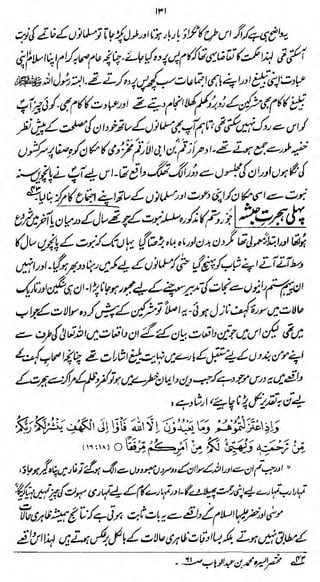 ۱۳۱
یہ واضح ہی ہے کہ اگر اس طرح کا ٹکراؤ بار بار ہوتا اور طول پکڑ جاتا تو مسلمانوں کے خاتمے کی نوبت
آسکتی تھی لہٰذا حکمت کا تقاضا یہی تھا کہ کام پس پردہ کیا جائے۔ چنانچہ عام صحابہ کرام اپنا اسلام، اپنی
عبادت، اپنی تبلیغ اور اپنے باہمی اجتماعات سب کچھ پس پردہ کرتے تھے۔ البتہ رسول اللہ ﷺ
تبلیغ کا کام بھی مشرکین کے رُو برو کھلم کھلا انجام دیتے تھے اور عبادت کا کام بھی۔ کوئی چیز آپ
کو اس سے روک نہیں سکتی تھی؛ تاہم آپ بھی مسلمانوں کے ساتھ خود ان کی مصلحت کے پیش نظر
خفیہ طور سے جمع ہوتے تھے۔ ادھر اَرقم بن ابی الارقم مخزومی کا مکان کوہ صفا پر سرکشوں
کی نگاہوں اور ان کی مجلسوں سے دور الگ تھلگ واقع تھا۔ اس لیے آپ نے پانچویں سنہ
نبوت سے اسی مکان کو اپنی دعوت اور مسلمانوں کے ساتھ اپنے اجتماع کا مرکز بنا لیا۔
پہلی ہجرتِ حبشہ جور و ستم کا مذکورہ سلسلہ نبوت کے چوتھے سال کے درمیان یا آخر میں شروع
ہوا تھا اور ابتداءً معمولی تھا مگر دن بدن اور ماہ بماہ بڑھتا گیا یہاں تک کہ نبوت کے پانچویں سال کا
وسط آتے آتے اپنے شباب کو پہنچ گیا حتیٰ کہ مسلمانوں کے لیے مکہ میں رہنا دوبھر ہوگیا۔ اور انہیں
ان پیہم ستم رانیوں سے نجات کی تدبیر سوچنے کے لیے مجبور ہوجانا پڑا۔ ان ہی سنگین اور تاریک
حالات میں سورۂ کہف نازل ہوئی۔ یہ اصلاً تو مشرکین کے پیش کردہ سوالات کے جواب
میں تھی لیکن اس میں جو تین واقعات بیان کئے گئے ان واقعات میں اللہ تعالیٰ کی طرف سے
اپنے مومن بندوں کے لیے مستقبل کے بارے میں نہایت بلیغ اشارات تھے چنانچہ اصحابِ کہف کے
واقعے میں یہ درس موجود ہے کہ جب دین و ایمان خطرے میں ہو تو کفر و ظلم کے مراکز سے ہجرت کے
لیے تن بہ تقدیر نکل پڑنا چاہیے، ارشاد ہے:
وَإِذِ اعْتَزَلْتُمُوهُمْ وَمَا يَعْبُدُونَ إِلَّا اللَّهَ فَأْوُوا إِلَى الْكَهْفِ يَنشُرْ لَكُمْ رَبُّكُم
مِّن رَّحْمَتِهِ وَيُهَيِّئْ لَكُم مِّنْ أَمْرِكُم مِّرْفَقًا ○ (۱۶:۱۸)
”اور جب تم ان سے اور اللہ کے سوا ان کے دوسرے معبودوں سے الگ ہو گئے تو غار میں پناہ گیر ہوجاؤ،
تمہارا رب تمہارے لیے اپنی رحمت پھیلا دے گا۔ اور تمہارے کام کے لیے تمہاری سہولت کی چیز تمہیں مہیا کرے گا“
موسیٰ اور خضر علیہما السلام کے واقعے سے یہ بات ثابت ہوتی ہے کہ نتائج ہمیشہ ظاہری حالات
کے مطابق نہیں ہوتے بلکہ بسا اوقات ظاہری حالات کے بالکل برعکس ہوتے ہیں لہٰذا اس واقعے
مختصر السیرۃ محمد بن عبدالوہاب ص ۶۱۔